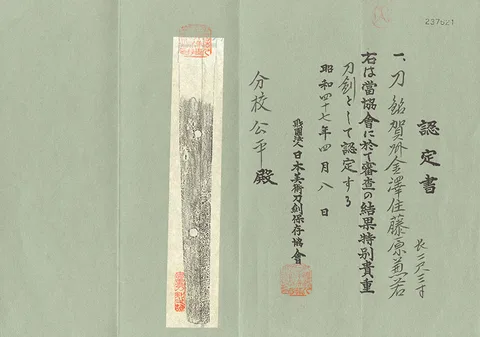 237621
認定書
一、刀 銘 賀州金澤住藤原兼若
長二尺三寸
右は當協會に於て審査の結果特別貴重
刀剣として認定する
昭和四十七年四月八日
財團法人日本美術刀剣保存協會
分校公平殿